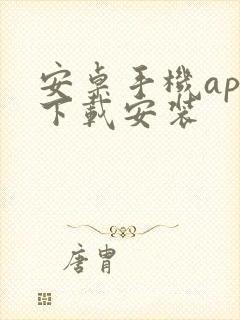 安桌手機ap
下載安装
唐胄